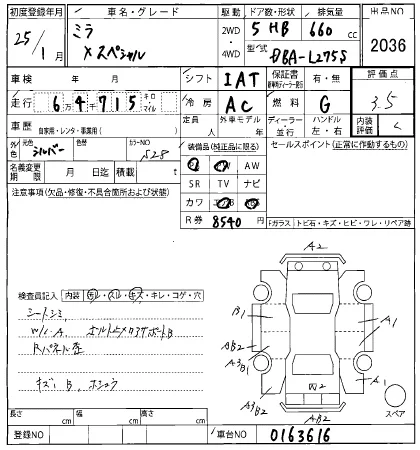 初度登録年月 車名・グレード 駆動 ドア数・形状 排気量 出品NO
25/1月 ミラ 2WD 5 HB 660 cc 2036
Xスペシャル 4WD 型式 DBA-L275S
車検 年 月 シフト IAT 保証書 有・無 評価点
走行 6万4千715 キロ・マイル 冷房 AC 燃料 G 3.5
車歴 自家用・レンタ・事業用( ) 定員 人 外車モデル 年 ディーラー 並行 ハンドル 左・右 内装評価 C
外色 元色 シルバー 色替 カラーNO S28 装備品(純正品に限る) セールスポイント(正常に作動するもの)
AW
名義変更期限 月 日迄 積載 t SR TV ナビ
注意事項(欠品・修復・不具合箇所および状態) カワ
R券 8540円 Fガラス トビ石・キズ・ヒビ・ワレ・リペア跡
A2
検査員記入 内装 キレ・コゲ・穴
シートシミ B1 A1
W/C A
Rパネル歪 AB2
A3B1
キズ B A3B2 A1
AB2 スペア
長さ cm 幅 cm 高さ cm
登録NO 車台NO 0163616